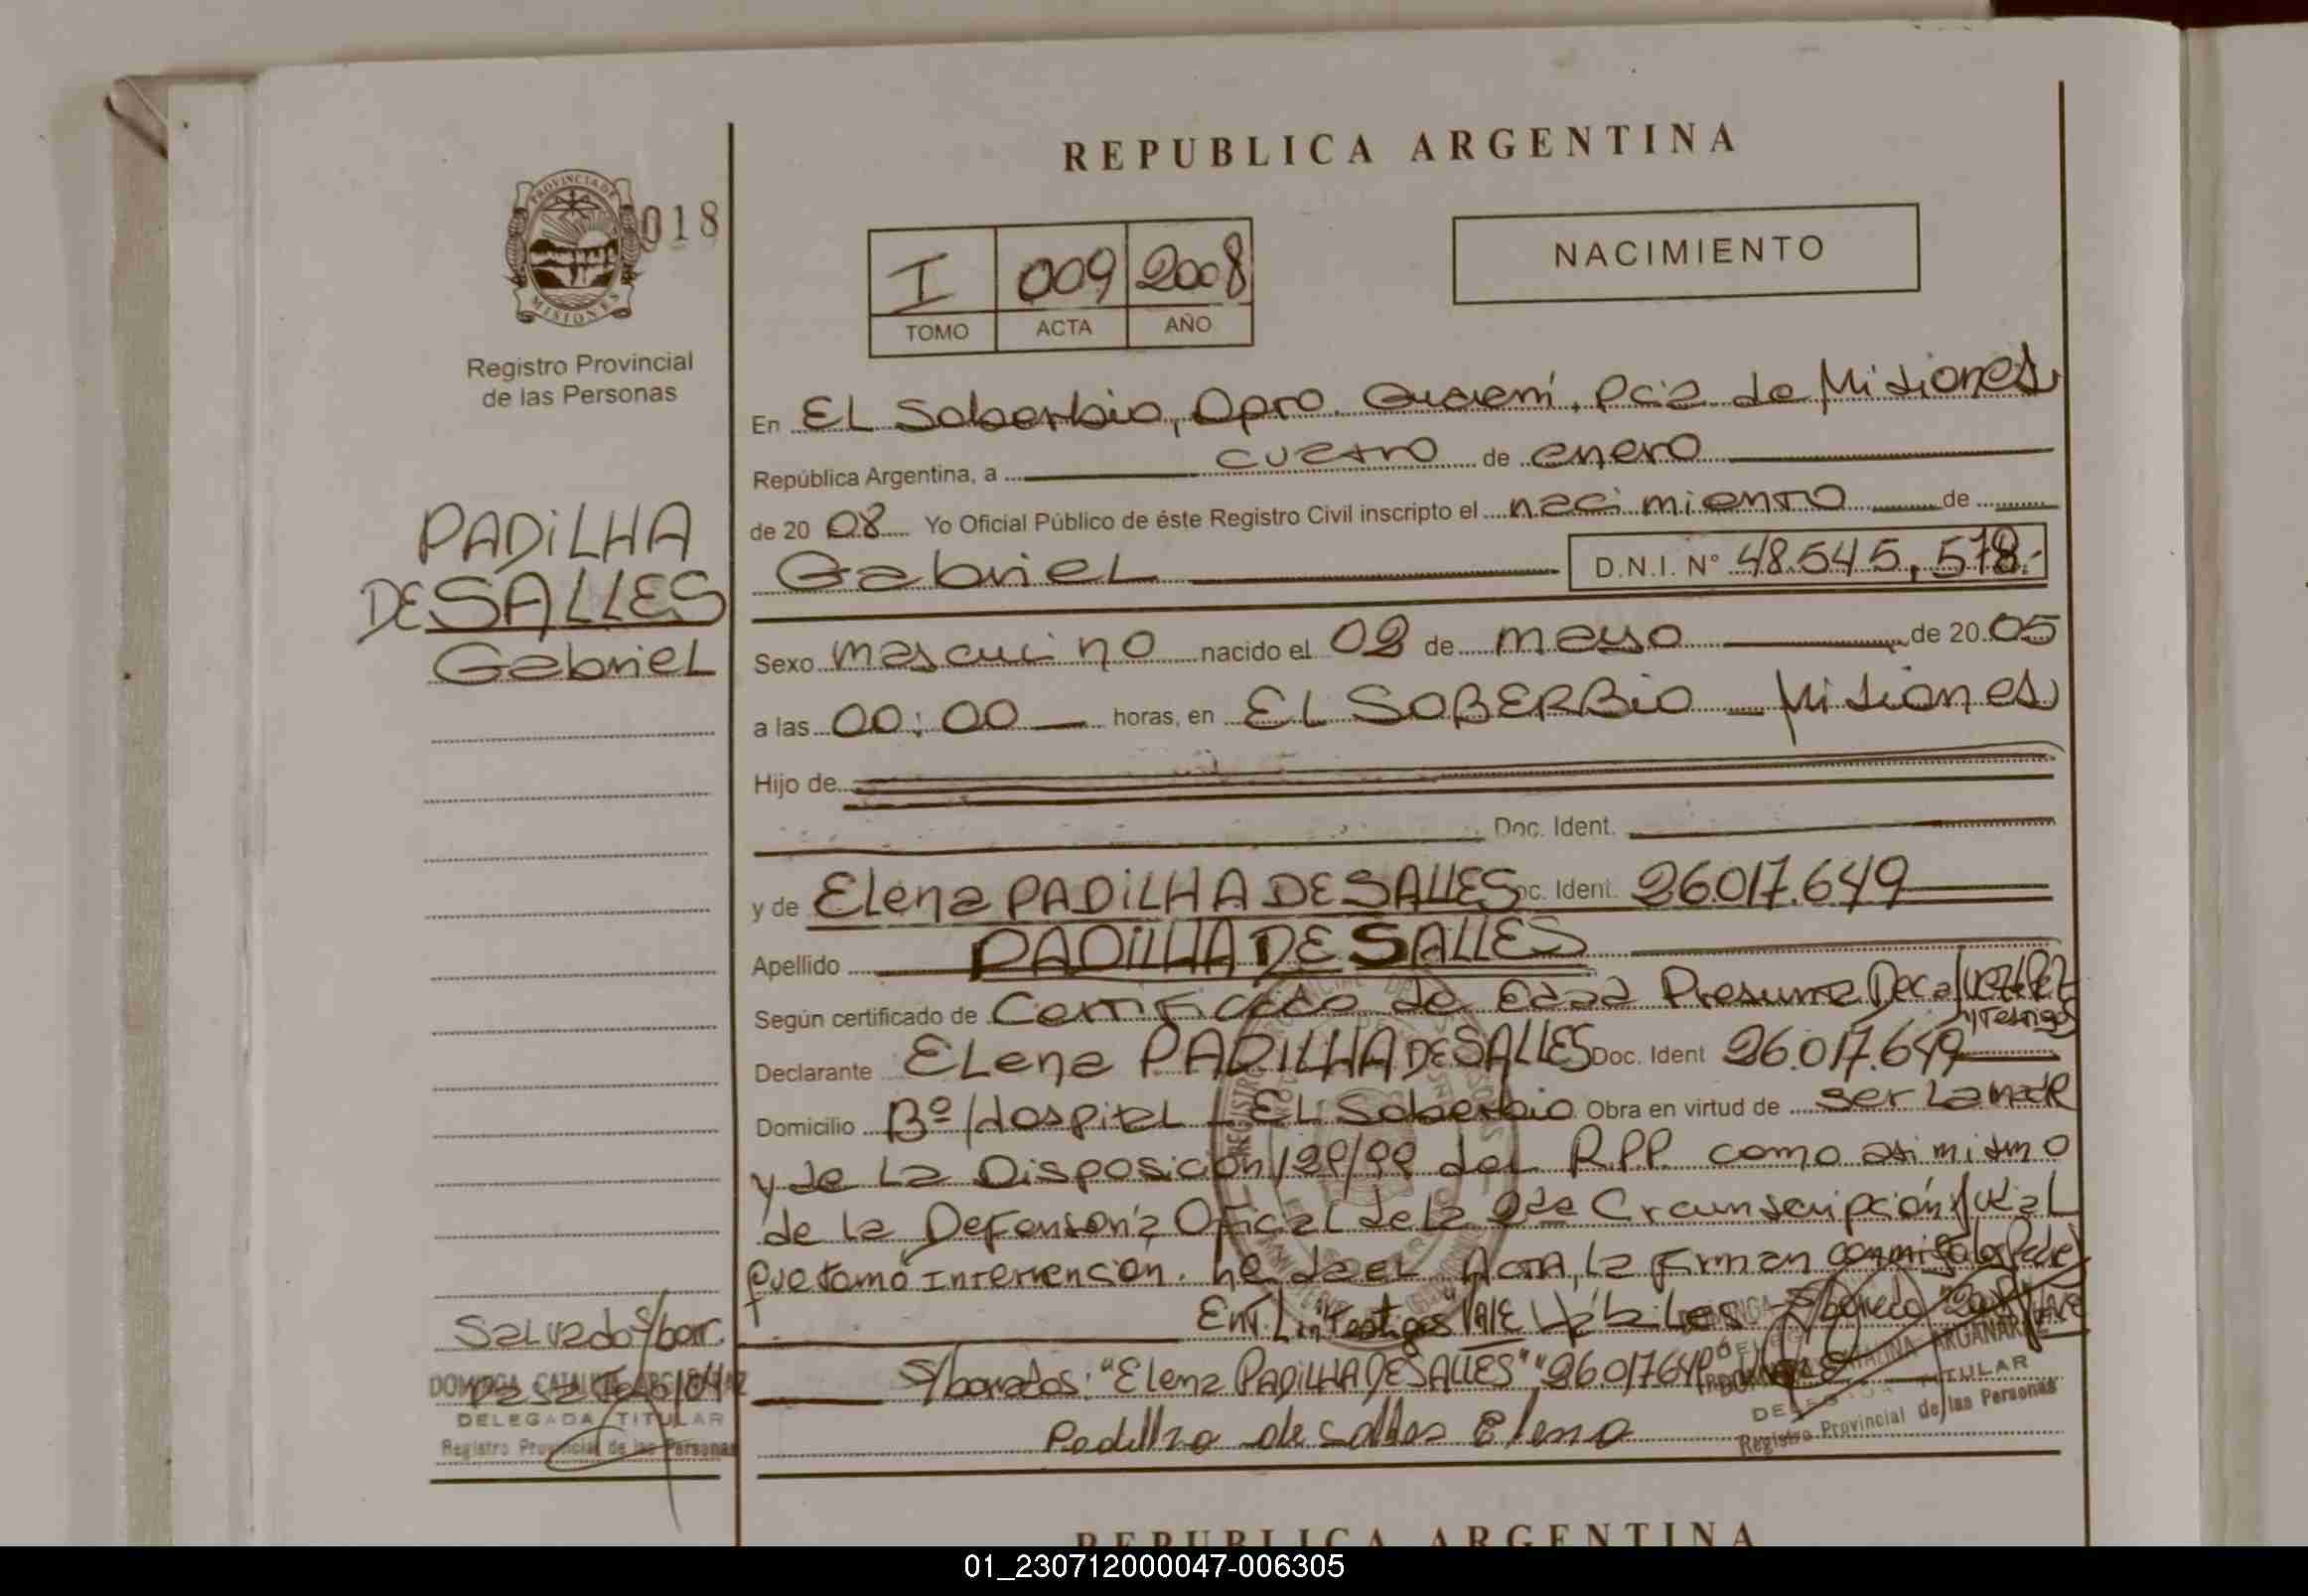 REPUBLICA ARGENTINA
PROVINCIA DE
MISIONES
018
Registro Provincial
de las Personas
I 009 2008
TOMO ACTA AÑO
NACIMIENTO
PADiLHA
DE SALLES
Gabriel
En EL Soberbio, Dpto. Guaraní, Pcia de Misiones
República Argentina, a cuatro de enero
de 20 08 Yo Oficial Público de éste Registro Civil inscripto el nacimiento de
Gabriel D.N.I. N° 48.545.578.-
Sexo masculino nacido el 02 de mayo de 20 05
a las 00:00 horas, en EL SOBERBiO - Misiones
Hijo de
Doc. Ident.
y de Elena PADiLHA DE SALLES oc. Ident. 26.017.649
Apellido PADiLHA DE SALLES
Según certificado de Certificado de Edad Presunta Dec. y Testigos
Declarante Elena PADILHA DE SALLES Doc. Ident 26.017.649
Domicilio Bº Hospital - EL Soberbio Obra en virtud de ser La madre
y de La Disposición 129/99 del R.P.P. como asi mismo
de la Defensoría Oficial de la 2da Circunscripción
que tomó intervención. Acta, la firman conmigo
Ent. Lin "Testigos" Vale
S/borrados: "Elena PADILHA DE SALLES" "26.017.649"
Padilha de salles Elena
Salvado S/borr.
DOMINGA CATALINA ARGANARAZ
DELEGADA TITULAR
Registro Provincial de las Personas
CATALINA ARGANARAZ
TITULAR
Registro Provincial de las Personas
REPUBLICA ARGENTINA
01_230712000047-006305